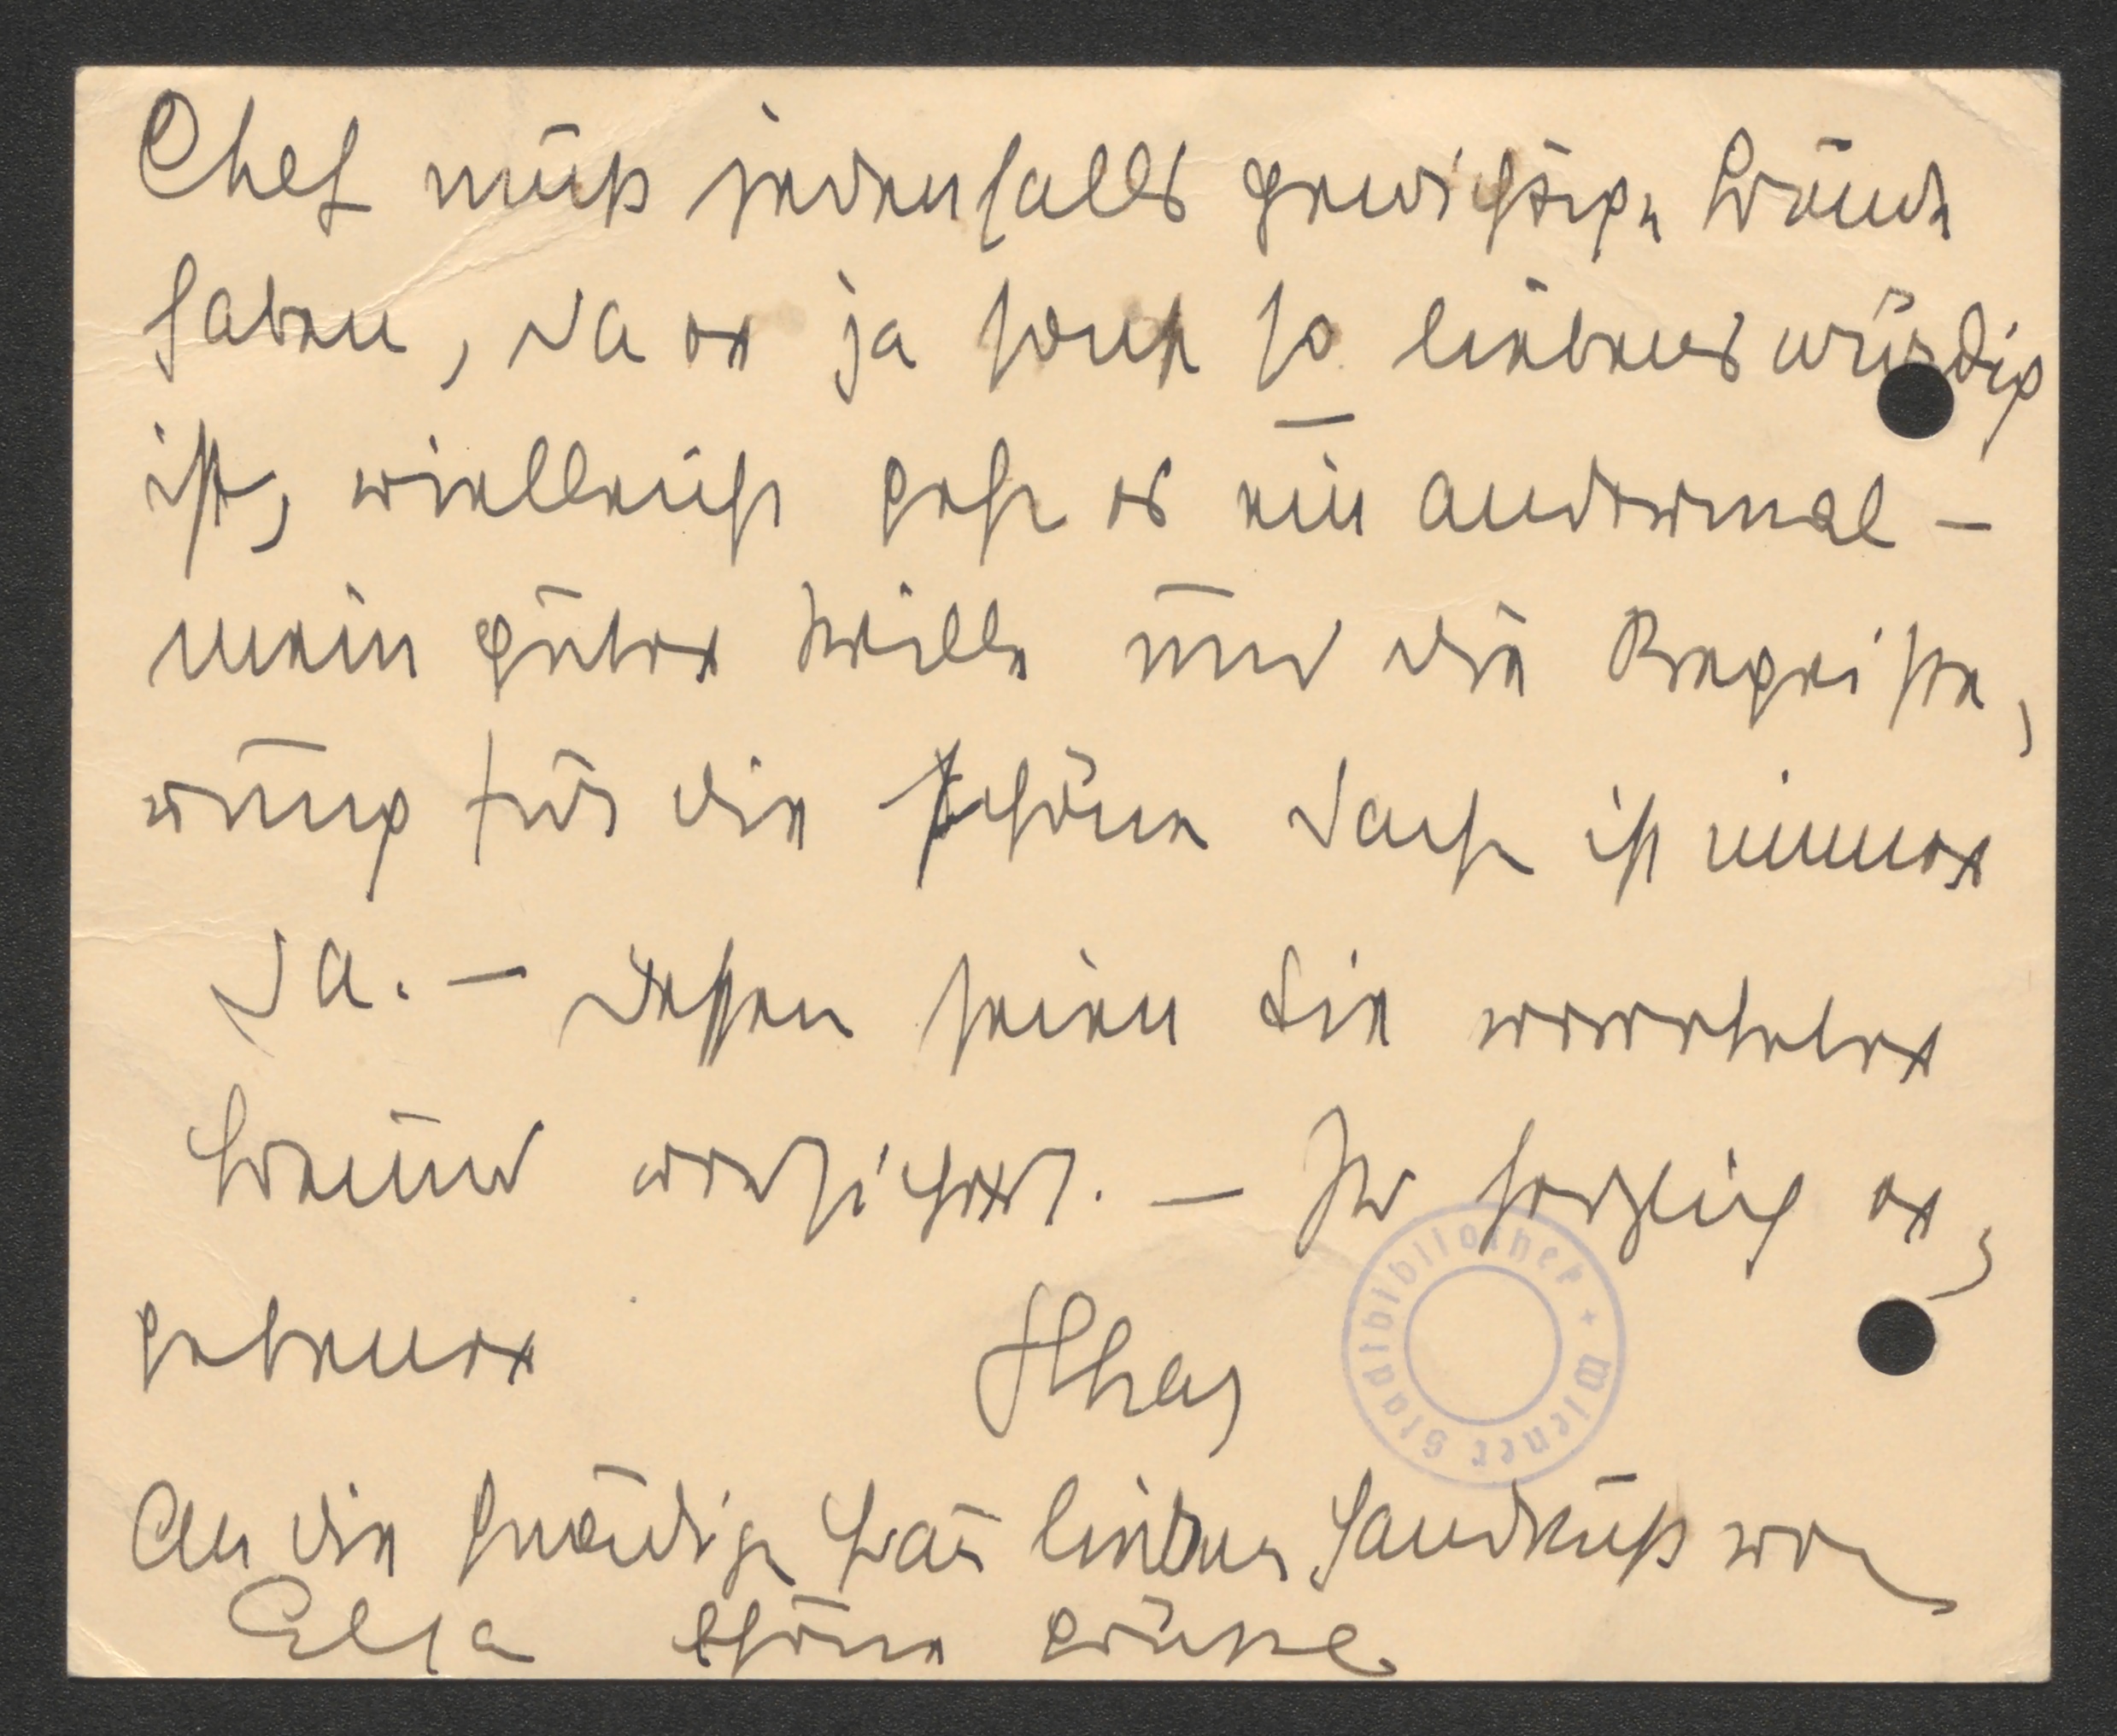 Chef muß jedenfalls gewichtige Gründe
haben, da er ja sonst so liebenswürdig
ist, vielleicht geht es ein andermal –
mein guter Wille und die Begeiste,
rung für die schöne Sache ist immer
da. – Dessen seien Sie verehrter
Freund versichert. – Ihr herzlich er,
gebener
An die gnädige Frau lieben Handkuß von
Elsa schöne Grüße
Wiener Stadtbibliothek